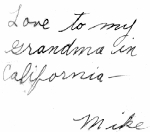 Love to my
Grandma in
California—
Mike